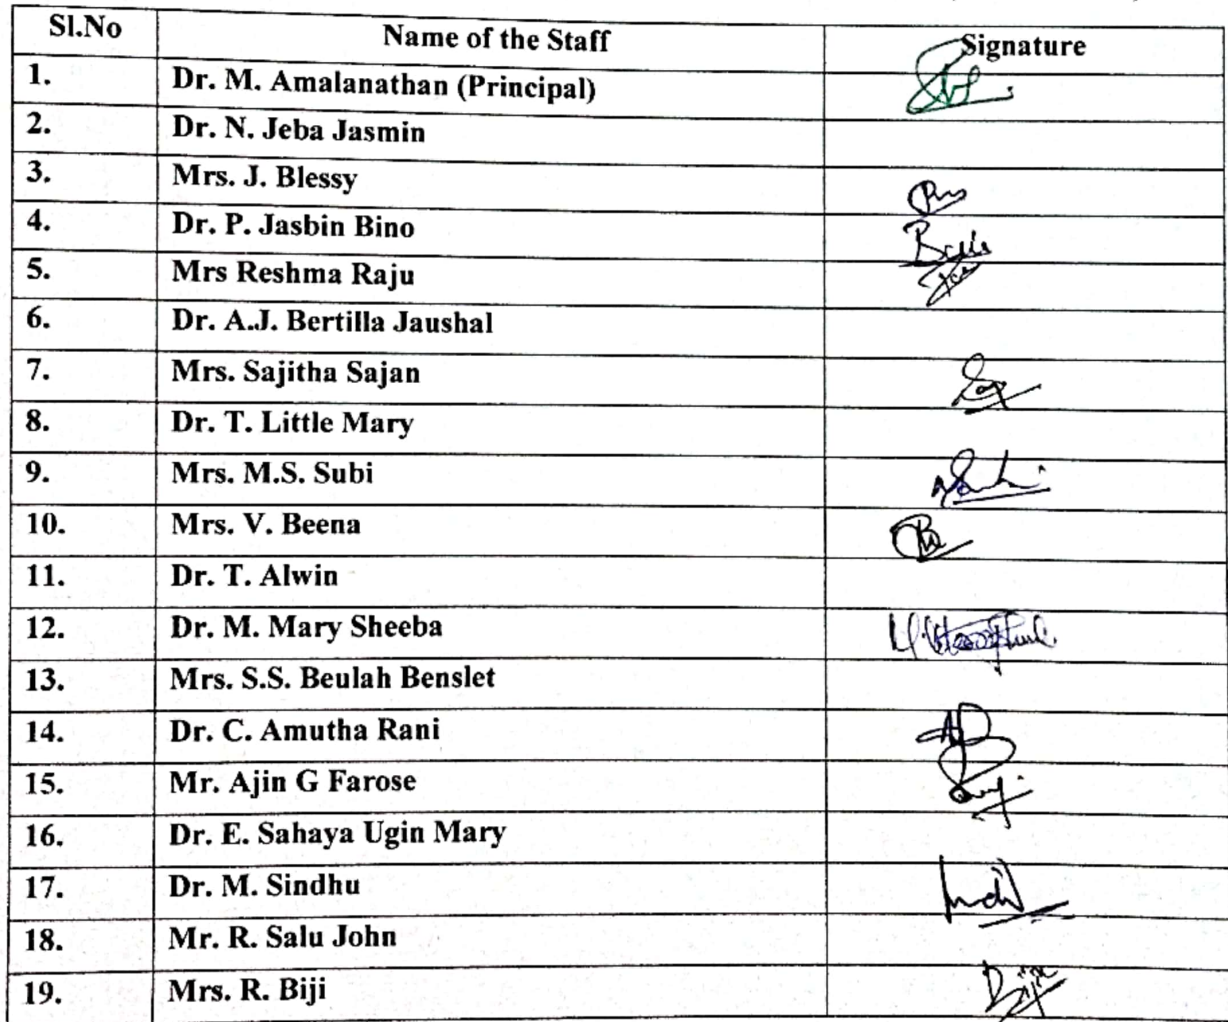 Sl.No Name of the Staff Signature
1. Dr. M. Amalanathan (Principal)
2. Dr. N. Jeba Jasmin
3. Mrs. J. Blessy
4. Dr. P. Jasbin Bino
5. Mrs Reshma Raju
6. Dr. A.J. Bertilla Jaushal
7. Mrs. Sajitha Sajan
8. Dr. T. Little Mary
9. Mrs. M.S. Subi
10. Mrs. V. Beena
11. Dr. T. Alwin
12. Dr. M. Mary Sheeba
13. Mrs. S.S. Beulah Benslet
14. Dr. C. Amutha Rani
15. Mr. Ajin G Farose
16. Dr. E. Sahaya Ugin Mary
17. Dr. M. Sindhu
18. Mr. R. Salu John
19. Mrs. R. Biji